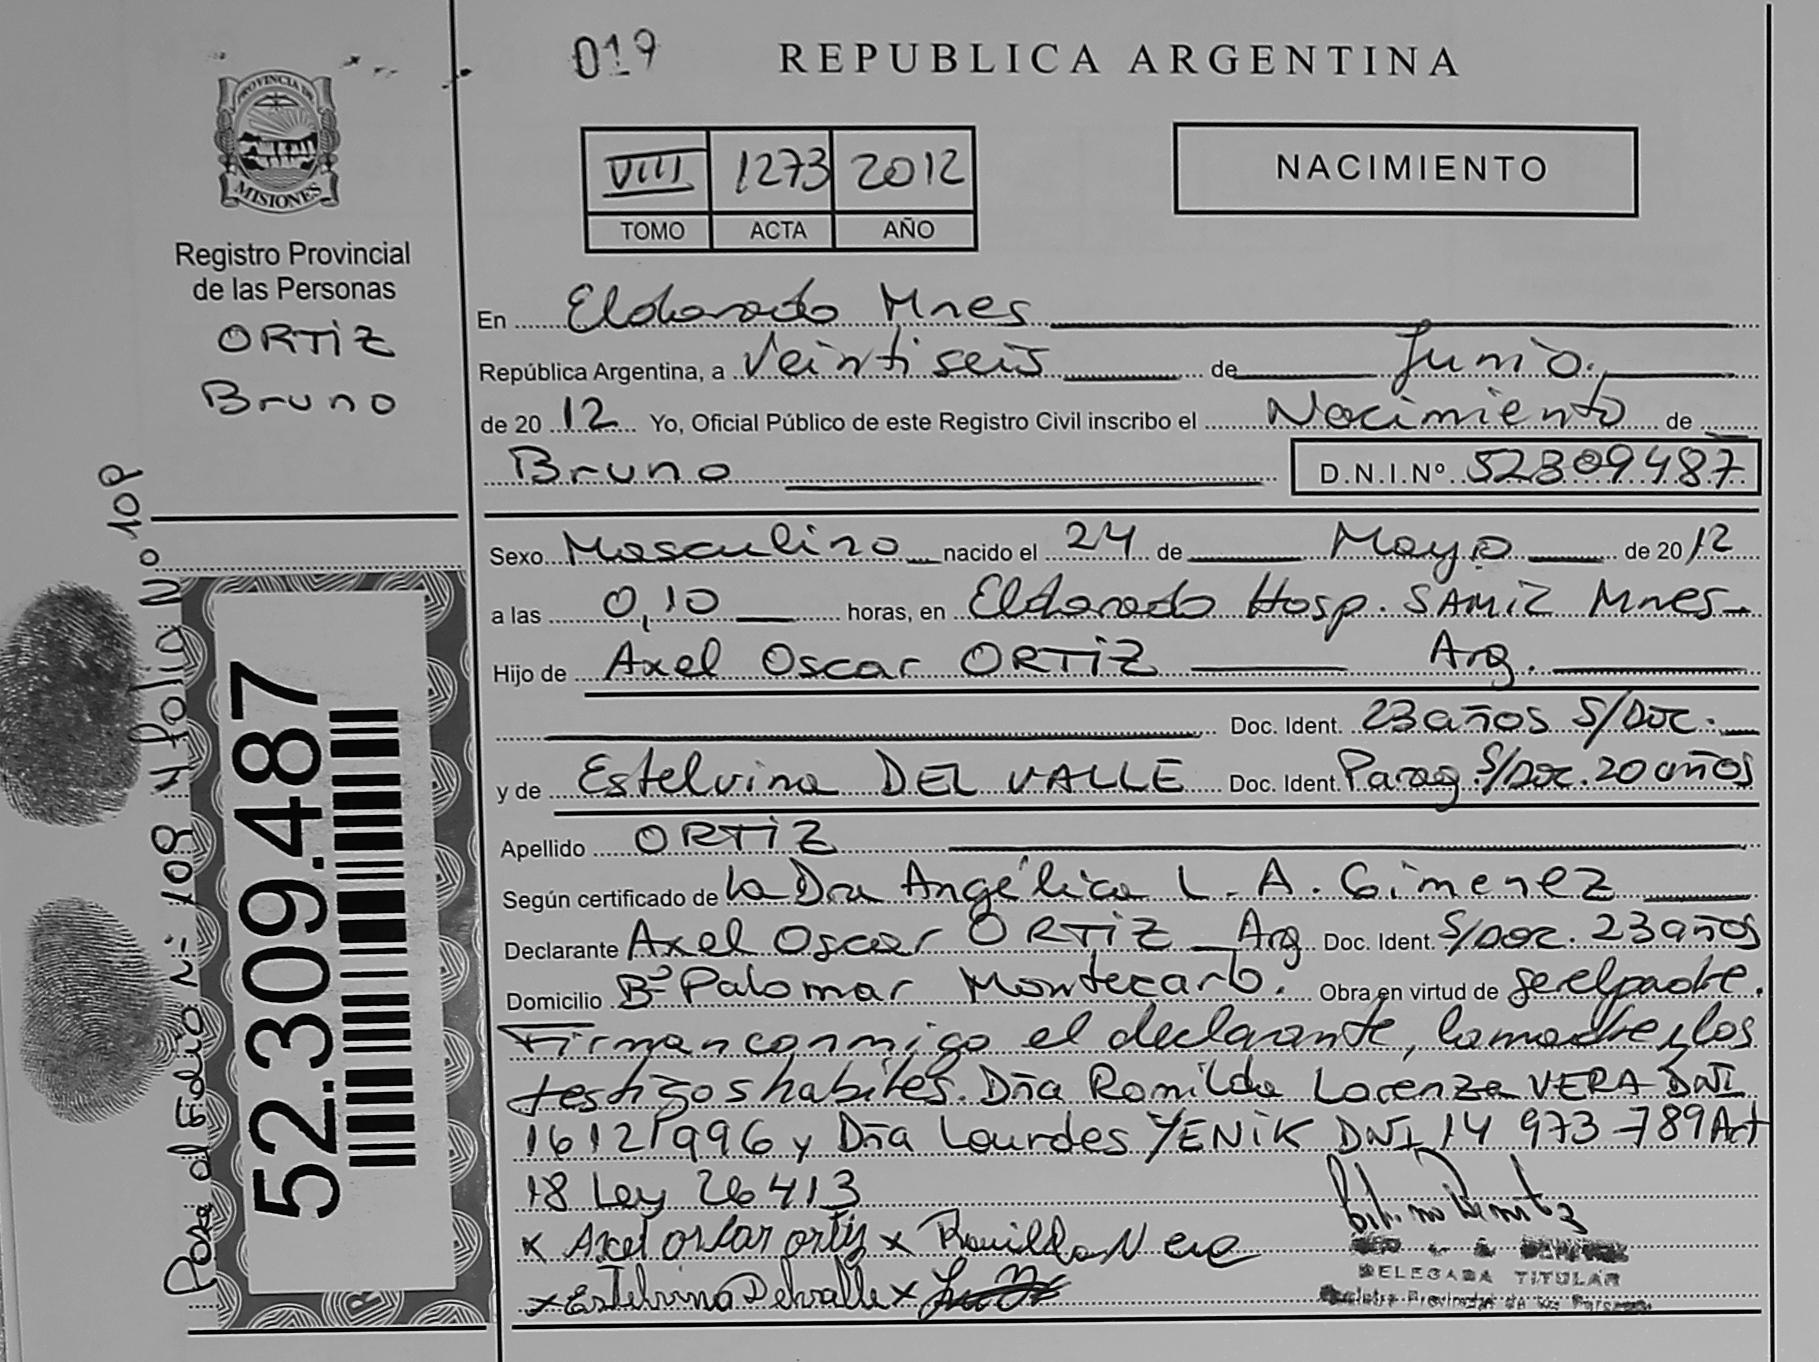 019
REPUBLICA ARGENTINA
PROVINCIA DE
MISIONES
Registro Provincial
de las Personas
ORTIZ
Bruno
VIII 1273 2012
TOMO ACTA AÑO
NACIMIENTO
En Eldorado Mnes
República Argentina, a Veintiseis de Junio.
de 2012 Yo, Oficial Público de este Registro Civil inscribo el Nacimiento de
Bruno D.N.I.Nº 52309487
Sexo Masculino nacido el 24 de Mayo de 2012
a las 0,10 horas, en Eldorado Hosp. SAMIZ Mnes
Hijo de Axel Oscar ORTIZ Arg.
Doc. Ident. 23 años S/Doc.
y de Estelvina DEL VALLE Doc. Ident. Parag. S/Doc. 20 años
Apellido ORTIZ
Según certificado de la Dra Angélica L. A. Gimenez
Declarante Axel Oscar ORTIZ Arg Doc. Ident. S/Doc. 23 años
Domicilio Bº Palomar Montecarlo. Obra en virtud de ser el padre.
Firman conmigo el declarante, la madre y los
testigos habiles. Dña Romilda Lorenza VERA DNI
16121996 y Dña Lourdes YENIK DNI 14 973 789 Art
18 Ley 26413
x Axel oscar ortiz x Romilda Vera
x Estelvina Delvalle x
DELEGADA TITULAR
Registro Provincial de las Personas
Pasa al Folio Nº 108 y folio Nº 109
52.309.487